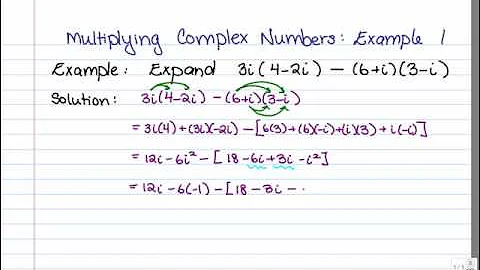 Multiplying Complex Numbers: Example 1
Example: Expand 3i(4-2i) - (6+i)(3-i)
Solution: 3i(4-2i) - (6+i)(3-i)
= 3i(4) + (3i)(-2i) - [6(3) + (6)(-i) + (i)(3) + i(-i)]
= 12i - 6i² - [18 - 6i + 3i - i²]
= 12i - 6(-1) - [18 - 3i -